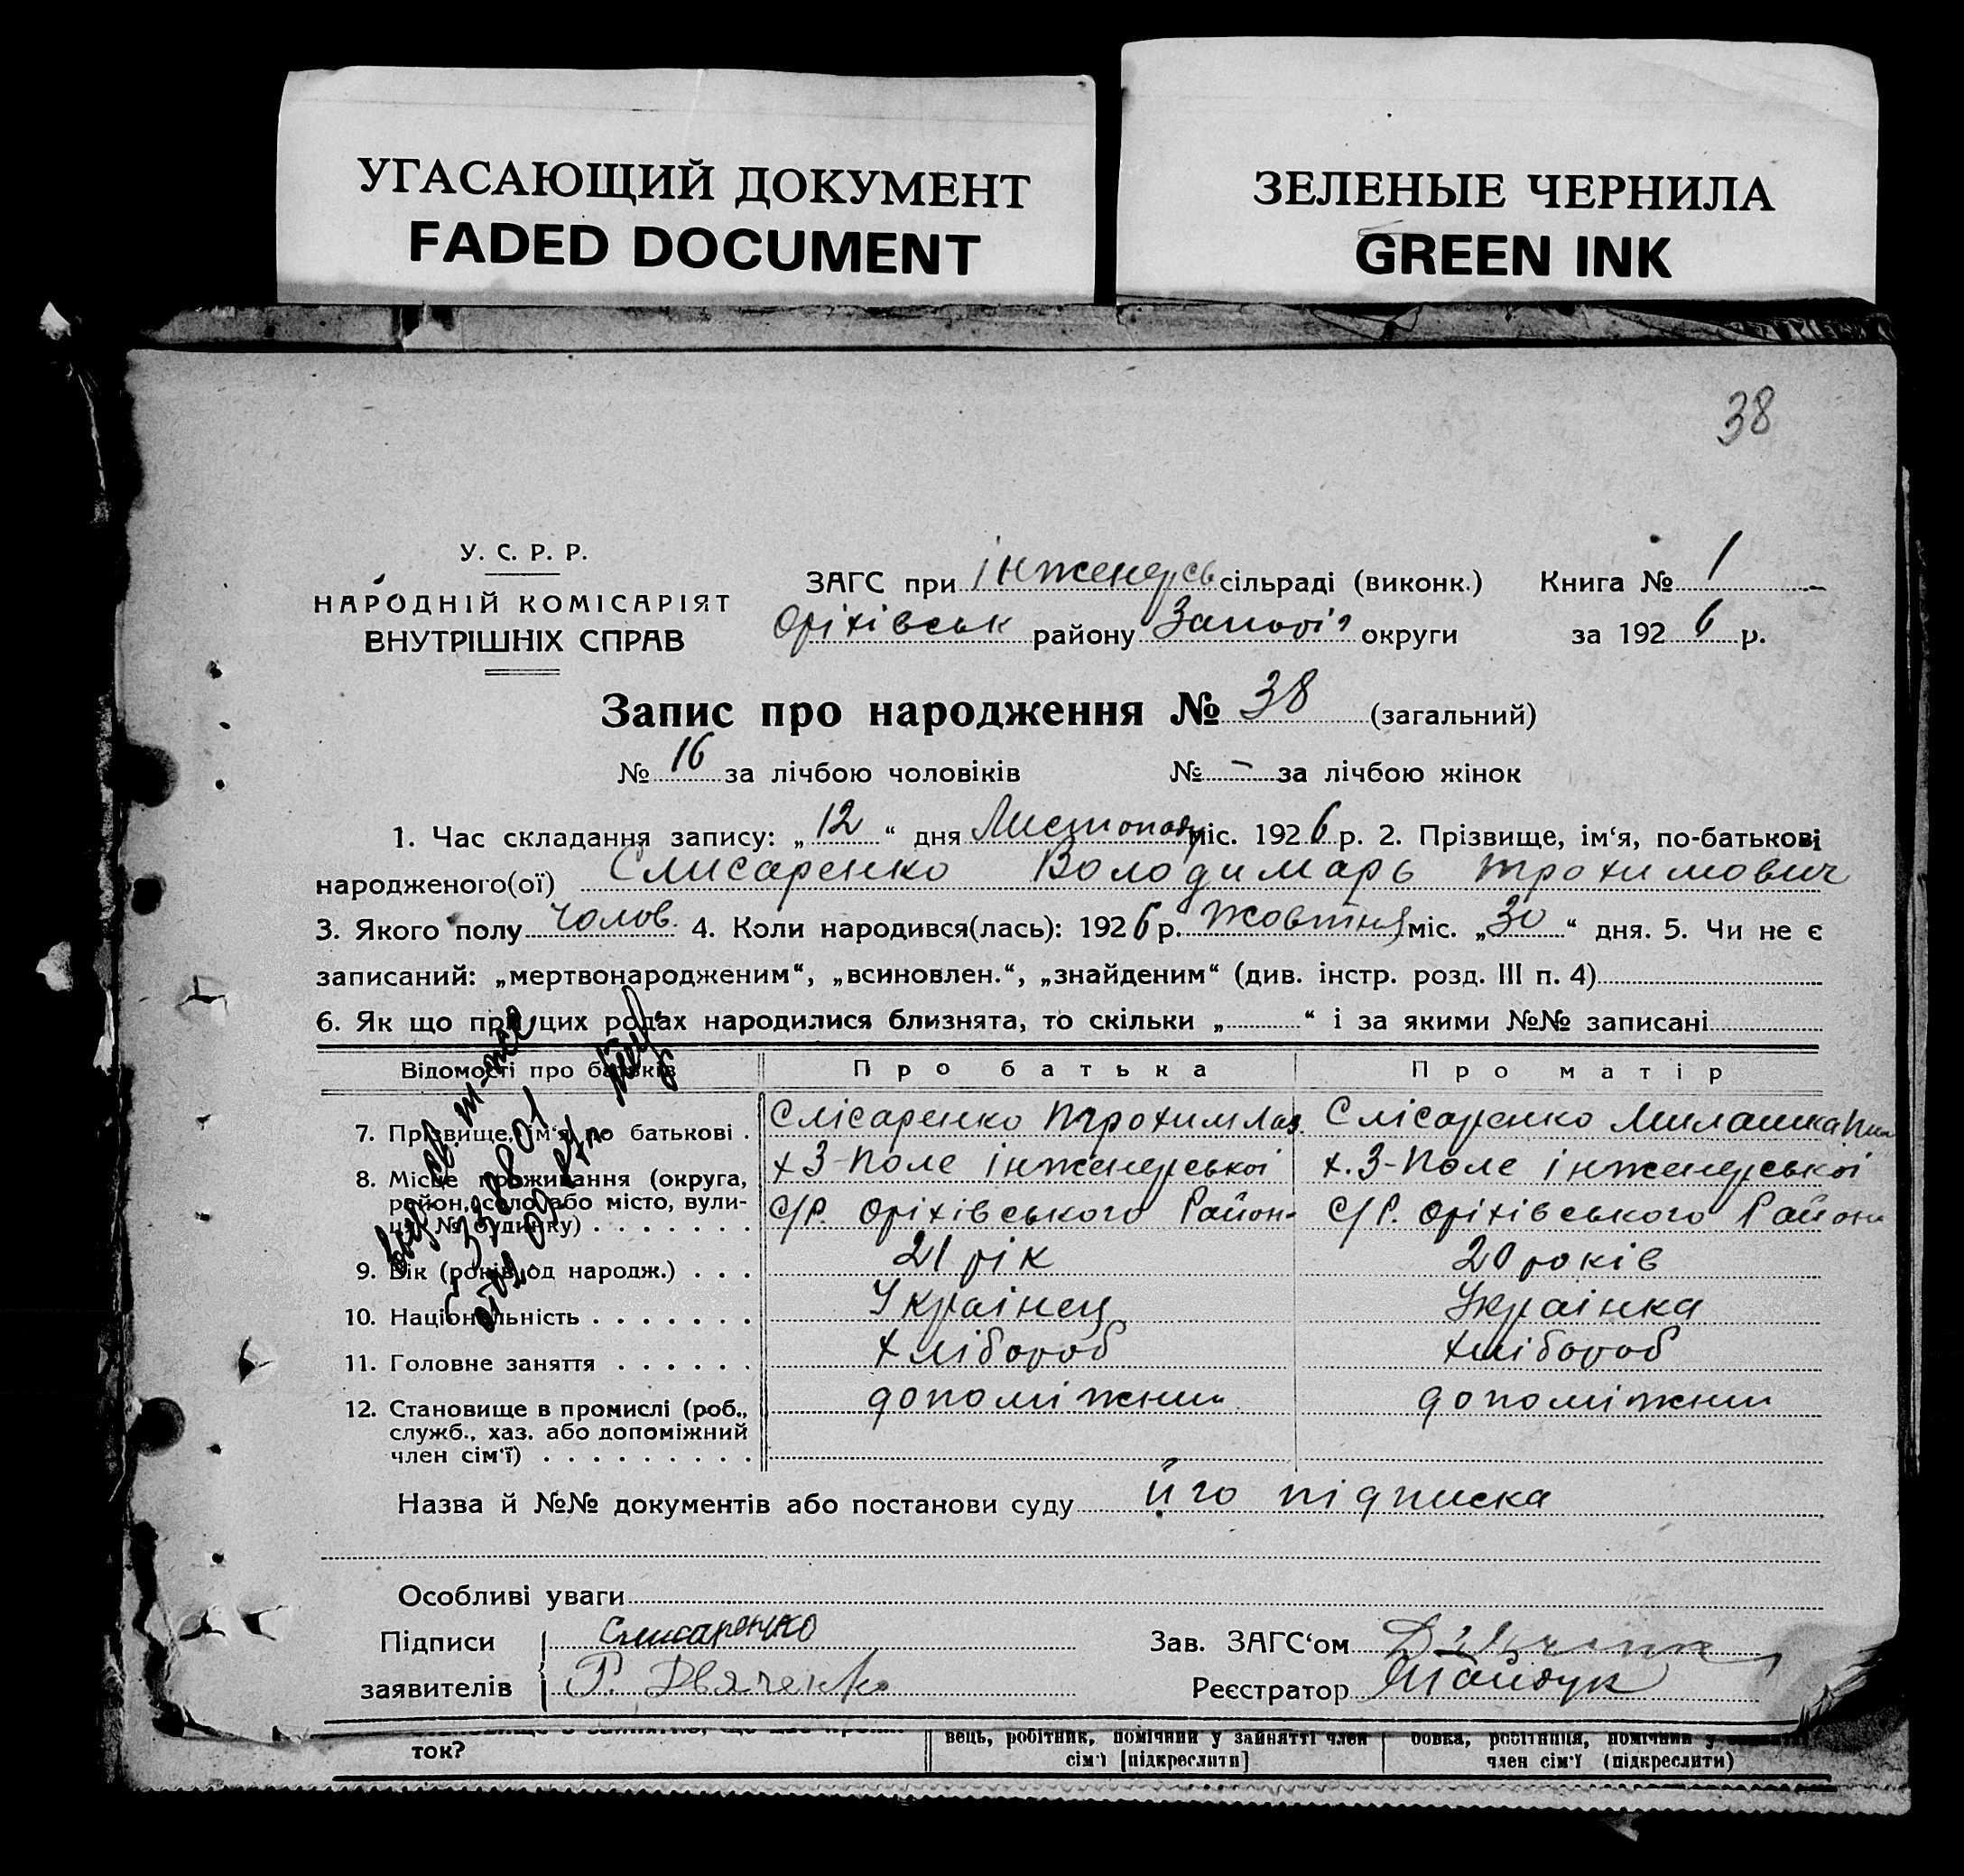 УГАСАЮЩИЙ ДОКУМЕНТ
FADED DOCUMENT
ЗЕЛЕНЫЕ ЧЕРНИЛА
GREEN INK
38
У. С. Р. Р.
НАРОДНІЙ КОМІСАРІЯТ
ВНУТРІШНІХ СПРАВ
ЗАГС при інженерсь сільраді (виконк.) Книга № 1
Оріхівськ району Запоріз округи за 1926 р.
Запис про народження № 38 (загальний)
№ 16 за лічбою чоловіків № - за лічбою жінок
1. Час складання запису: „12“ дня Листопаду міс. 1926 р. 2. Прізвище, ім‘я, по-батькові
народженого(ої) Слисаренко Володимарь Трохимович
3. Якого полу чолов. 4. Коли народився(лась): 1926 р. жовтня міс. „30“ дня. 5. Чи не є
записаний: „мертвонародженим“, „всиновлен.“, „знайденим“ (див. інстр. розд. III п. 4)
6. Як що при цих родах народилися близнята, то скільки „ “ і за якими №№ записані
Відомості про батьків Про батька Про матір
7. Прізвище, ім‘я по батькові . Слісаренко Трохим Лаз. Слісаренко Милашка
8. Місце проживання (округа, х З-Поле інженерської х. З-Поле інженерської
район, село або місто, вули-
ця, № будинку) . . . . . . . С/Р. Оріхівського Район С/Р. Оріхівського Район
9. Вік (років од народж.) . . . 21 рік 20 років
10. Національність . . . . . . . Українец Українка
11. Головне заняття . . . . . . хлібороб хлібороб
12. Становище в промислі (роб., допоміжни допоміжни
служб., хаз. або допоміжний
член сім‘ї) . . . . . . . . .
Назва й №№ документів або постанови суду його підписка
Особливі уваги
Підписи Слисаренко Зав. ЗАГС‘ом
заявителів Р. Дьяченко Реєстратор
ток?
вець, робітник, помічний у зайнятті член
сім‘ї [підкреслити]
бовка, робітниця, помічний у
член сім‘ї (підкреслити)